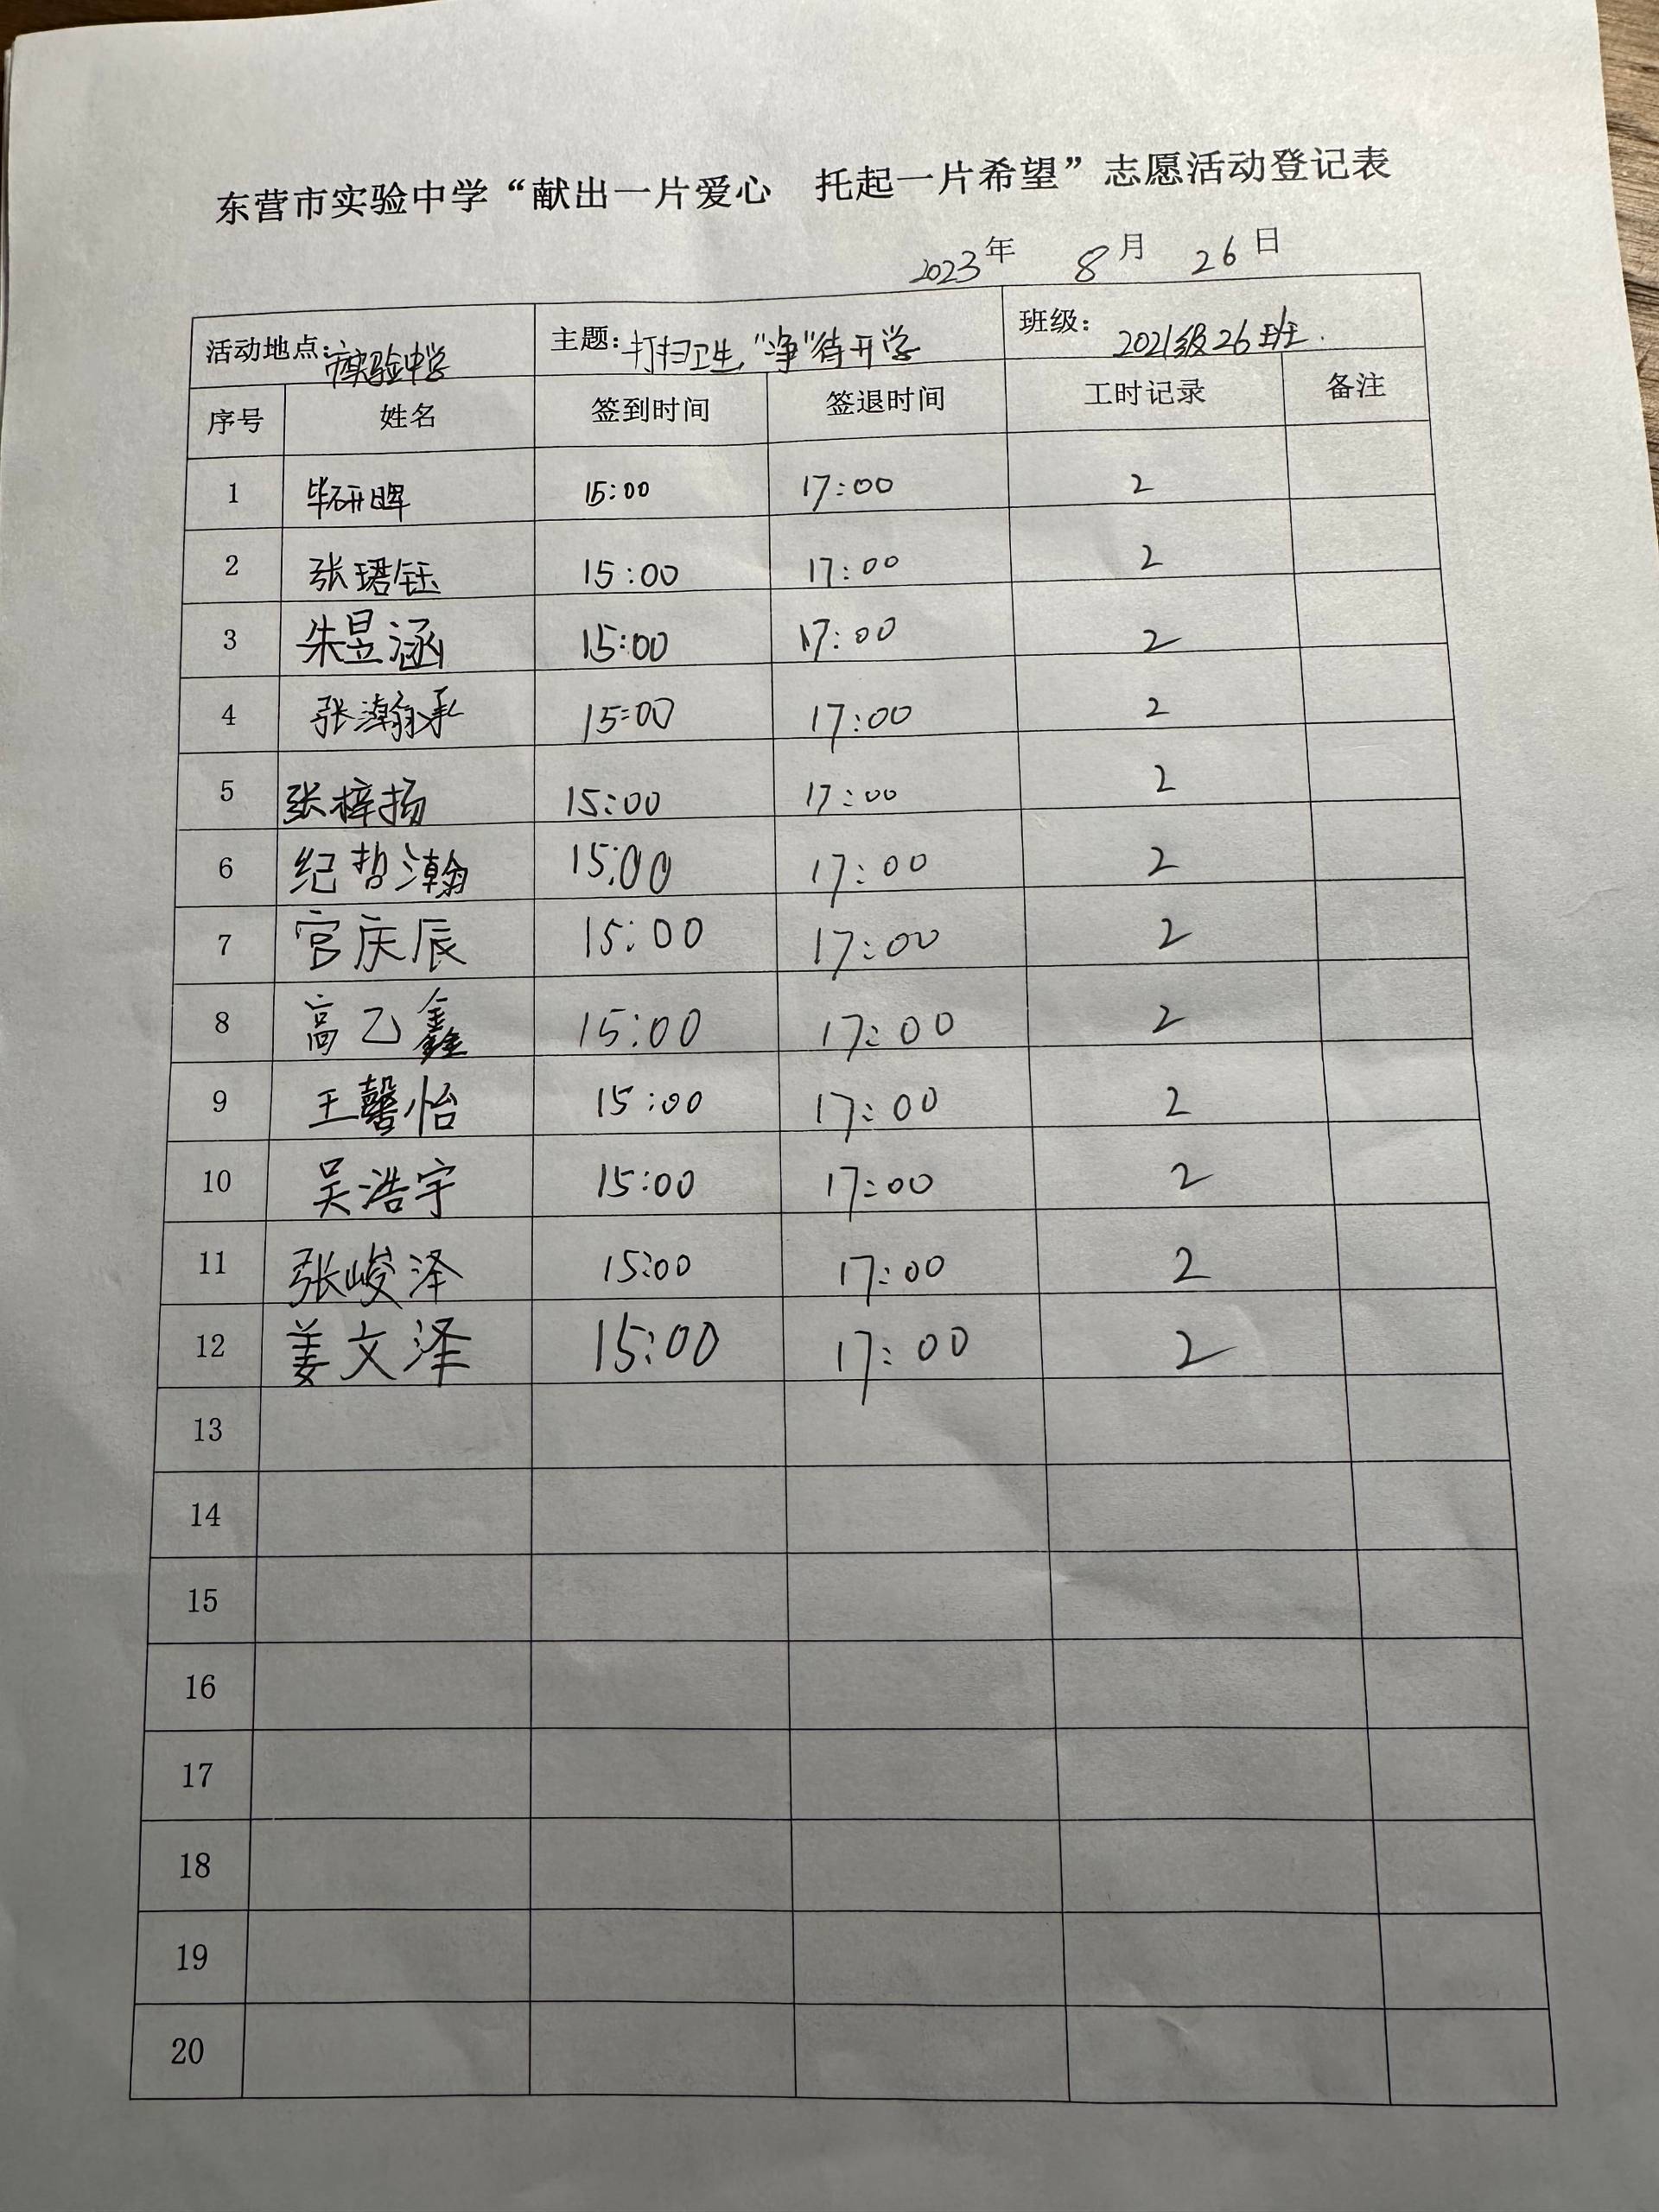 东营市实验中学“献出一片爱心 托起一片希望”志愿活动登记表
2023年 8月 26日
活动地点:市实验中学 主题:打扫卫生,“净”待开学 班级:2021级26班.
序号 姓名 签到时间 签退时间 工时记录 备注
1 毕研晖 15:00 17:00 2
2 张珺钰 15:00 17:00 2
3 朱昱涵 15:00 17:00 2
4 张瀚承 15:00 17:00 2
5 张梓扬 15:00 17:00 2
6 纪哲瀚 15:00 17:00 2
7 宫庆辰 15:00 17:00 2
8 高乙鑫 15:00 17:00 2
9 王馨怡 15:00 17:00 2
10 吴浩宇 15:00 17:00 2
11 张峻泽 15:00 17:00 2
12 姜文泽 15:00 17:00 2
13
14
15
16
17
18
19
20